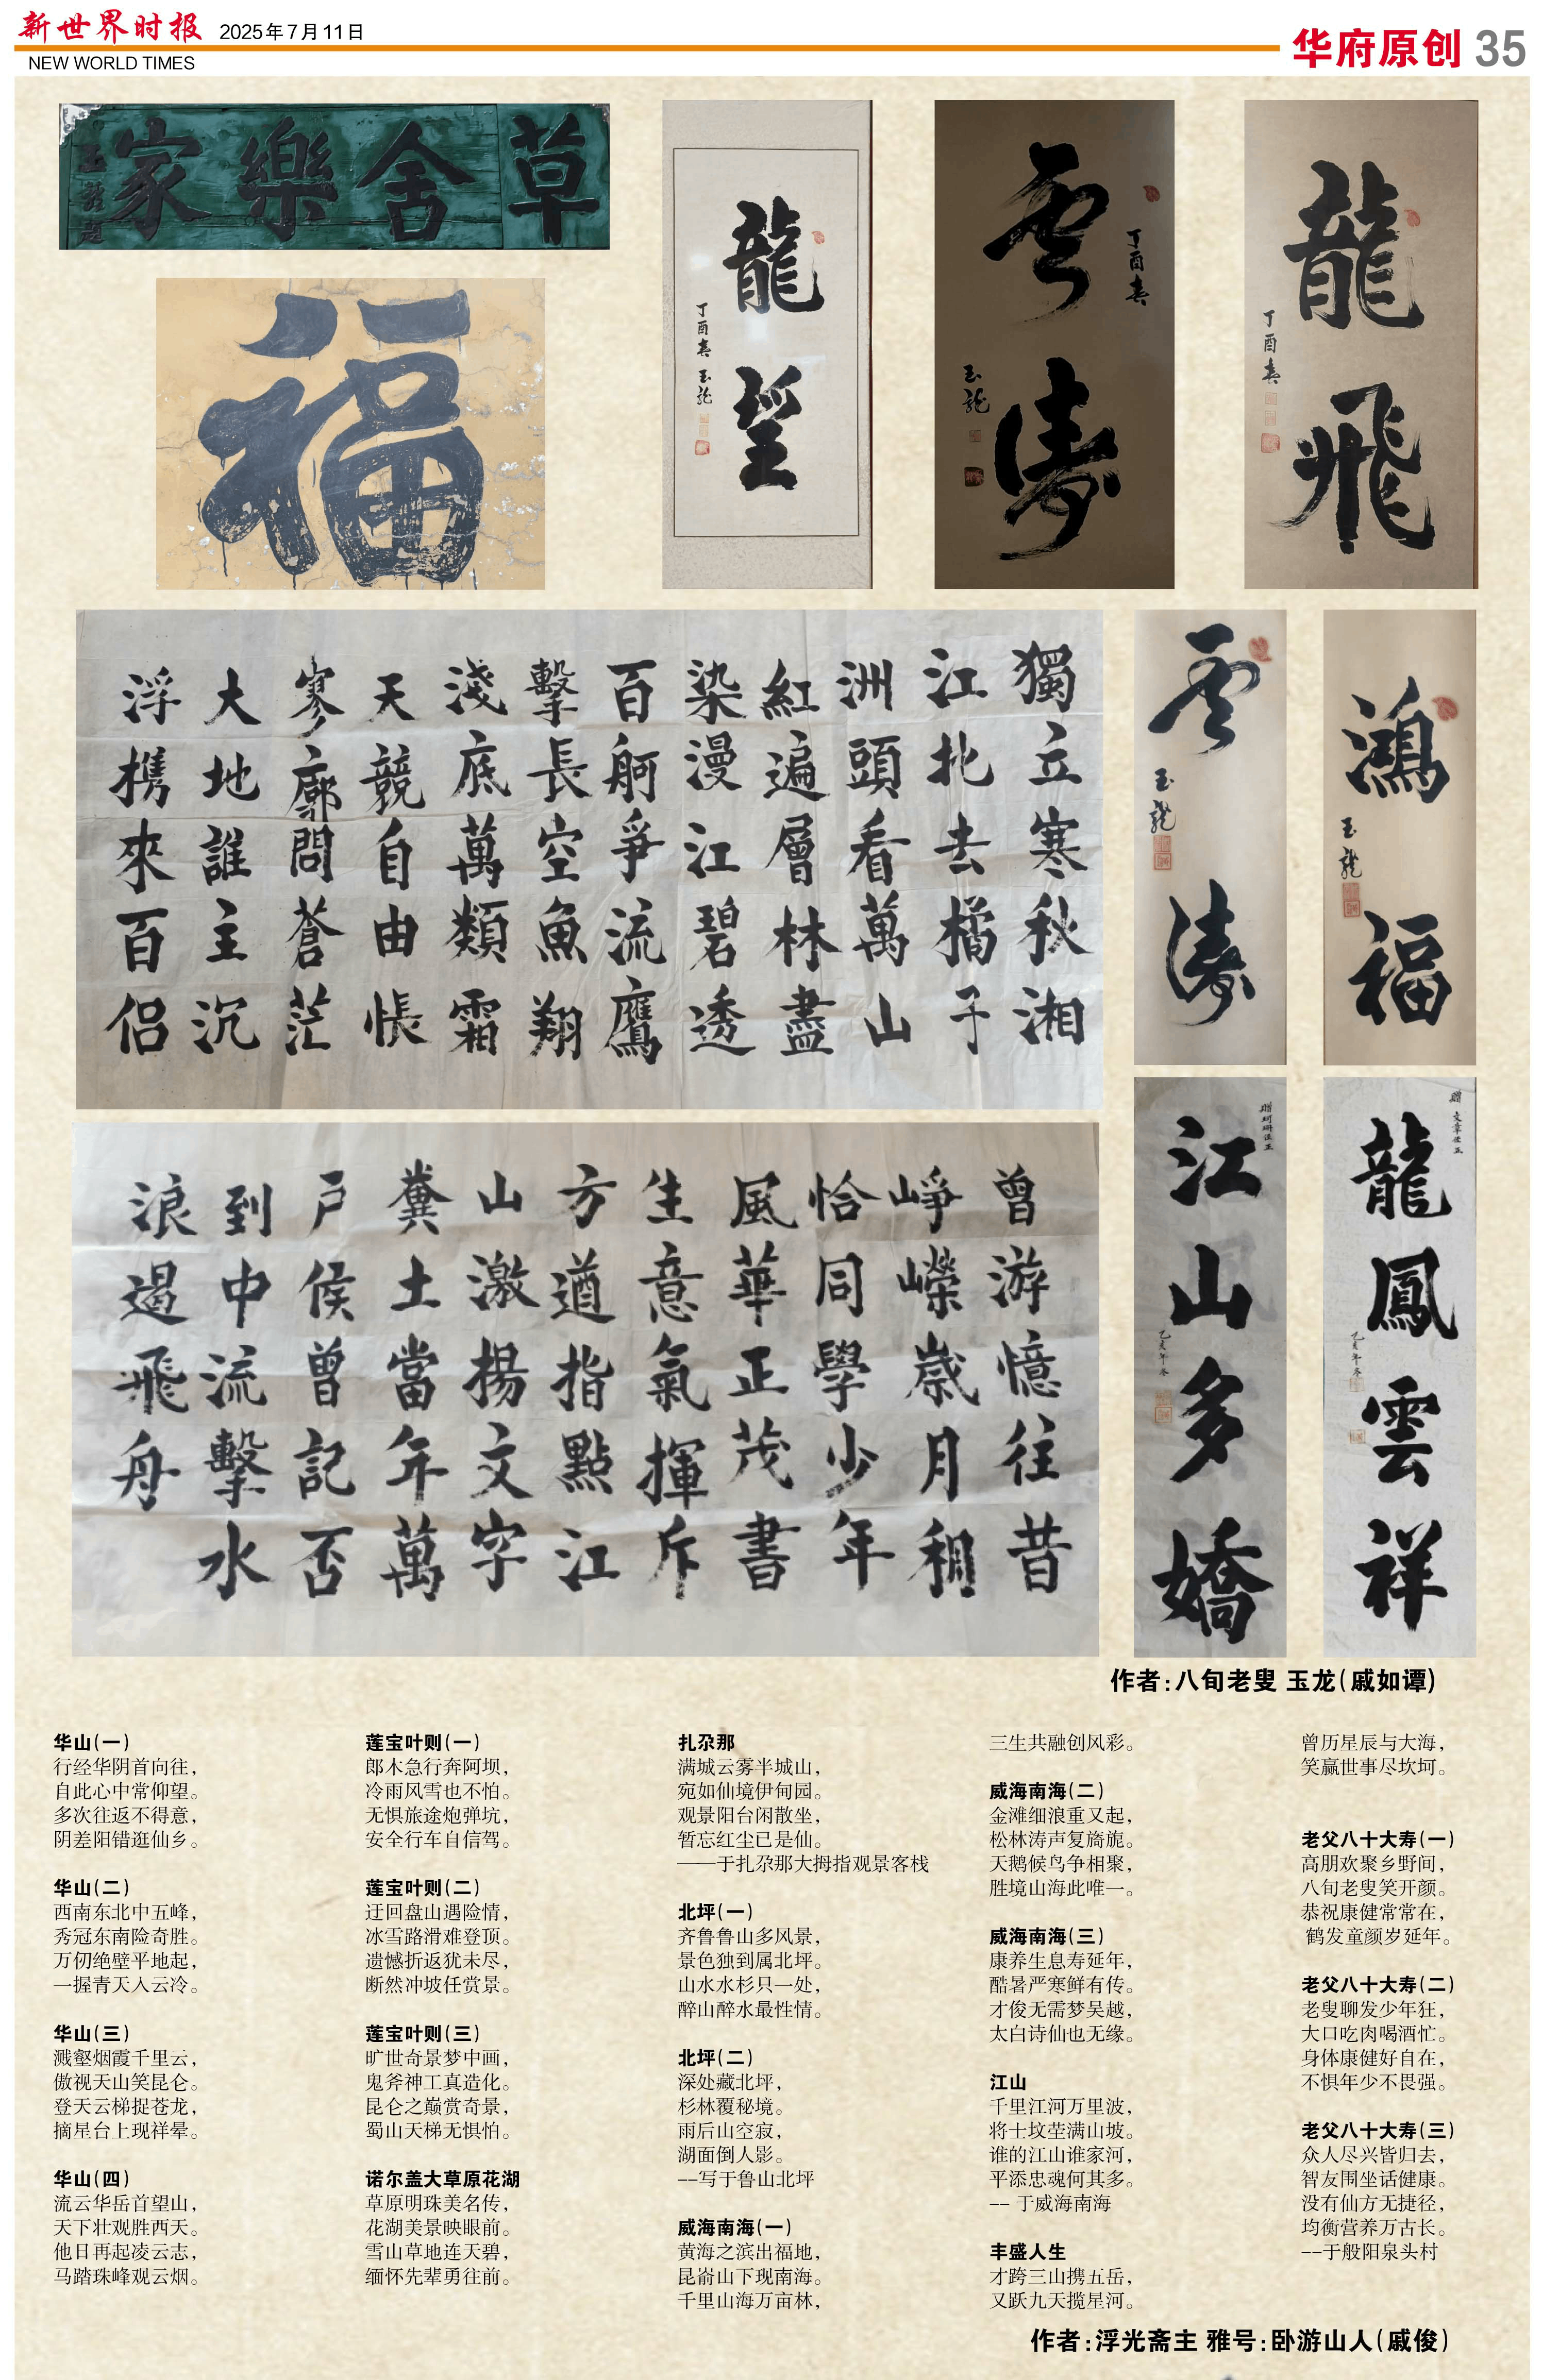 新世界时报
2025年7月11日
NEW WORLD TIMES
华府原创 35
草舍樂家
福
龍望
丁酉春 玉龍
丁酉春
雲濤
玉龍
龍飛
丁酉春
獨立寒秋湘
江北去橘子
洲頭看萬山
紅遍層林盡
染漫江碧透
百舸爭流鷹
擊長空魚翔
淺底萬類霜
天競自由悵
寥廓問蒼茫
大地誰主沉
浮携來百侣
雲濤
玉龍
鴻福
玉龍
曾游憶往昔
崢嶸歲月稠
恰同學少年
風華正茂書
生意氣揮斥
方遒指點江
山激揚文字
糞土當年萬
戶侯曾記否
到中流擊水
浪遏飛舟
江山多嬌
龍鳳雲祥
作者：八旬老叟 玉龙（戚如谭）
华山（一）
行经华阴首向往，
自此心中常仰望。
多次往返不得意，
阴差阳错逛仙乡。
华山（二）
西南东北中五峰，
秀冠东南险奇胜。
万仞绝壁平地起，
一握青天入云冷。
华山（三）
溅壑烟霞千里云，
傲视天山笑昆仑。
登天云梯捉苍龙，
摘星台上现祥晕。
华山（四）
流云华岳首望山，
天下壮观胜西天。
他日再起凌云志，
马踏珠峰观云烟。
莲宝叶则（一）
郎木急行奔阿坝，
冷雨风雪也不怕。
无惧旅途炮弹坑，
安全行车自信驾。
莲宝叶则（二）
迂回盘山遇险情，
冰雪路滑难登顶。
遗憾折返犹未尽，
断然冲坡任赏景。
莲宝叶则（三）
旷世奇景梦中画，
鬼斧神工真造化。
昆仑之巅赏奇景，
蜀山天梯无惧怕。
诺尔盖大草原花湖
草原明珠美名传，
花湖美景映眼前。
雪山草地连天碧，
缅怀先辈勇往前。
扎尕那
满城云雾半城山，
宛如仙境伊甸园。
观景阳台闲散坐，
暂忘红尘已是仙。
——于扎尕那大拇指观景客栈
北坪（一）
齐鲁鲁山多风景，
景色独到属北坪。
山水水杉只一处，
醉山醉水最性情。
北坪（二）
深处藏北坪，
杉林覆秘境。
雨后山空寂，
湖面倒人影。
--写于鲁山北坪
威海南海（一）
黄海之滨出福地，
昆嵛山下现南海。
千里山海万亩林，
三生共融创风彩。
威海南海（二）
金滩细浪重又起，
松林涛声复旖旎。
天鹅候鸟争相聚，
胜境山海此唯一。
威海南海（三）
康养生息寿延年，
酷暑严寒鲜有传。
才俊无需梦吴越，
太白诗仙也无缘。
江山
千里江河万里波，
将士坟茔满山坡。
谁的江山谁家河，
平添忠魂何其多。
-- 于威海南海
丰盛人生
才跨三山携五岳，
又跃九天揽星河。
曾历星辰与大海，
笑赢世事尽坎坷。
老父八十大寿（一）
高朋欢聚乡野间，
八旬老叟笑开颜。
恭祝康健常常在，
鹤发童颜岁延年。
老父八十大寿（二）
老叟聊发少年狂，
大口吃肉喝酒忙。
身体康健好自在，
不惧年少不畏强。
老父八十大寿（三）
众人尽兴皆归去，
智友围坐话健康。
没有仙方无捷径，
均衡营养万古长。
--于般阳泉头村
作者：浮光斋主 雅号：卧游山人（戚俊）